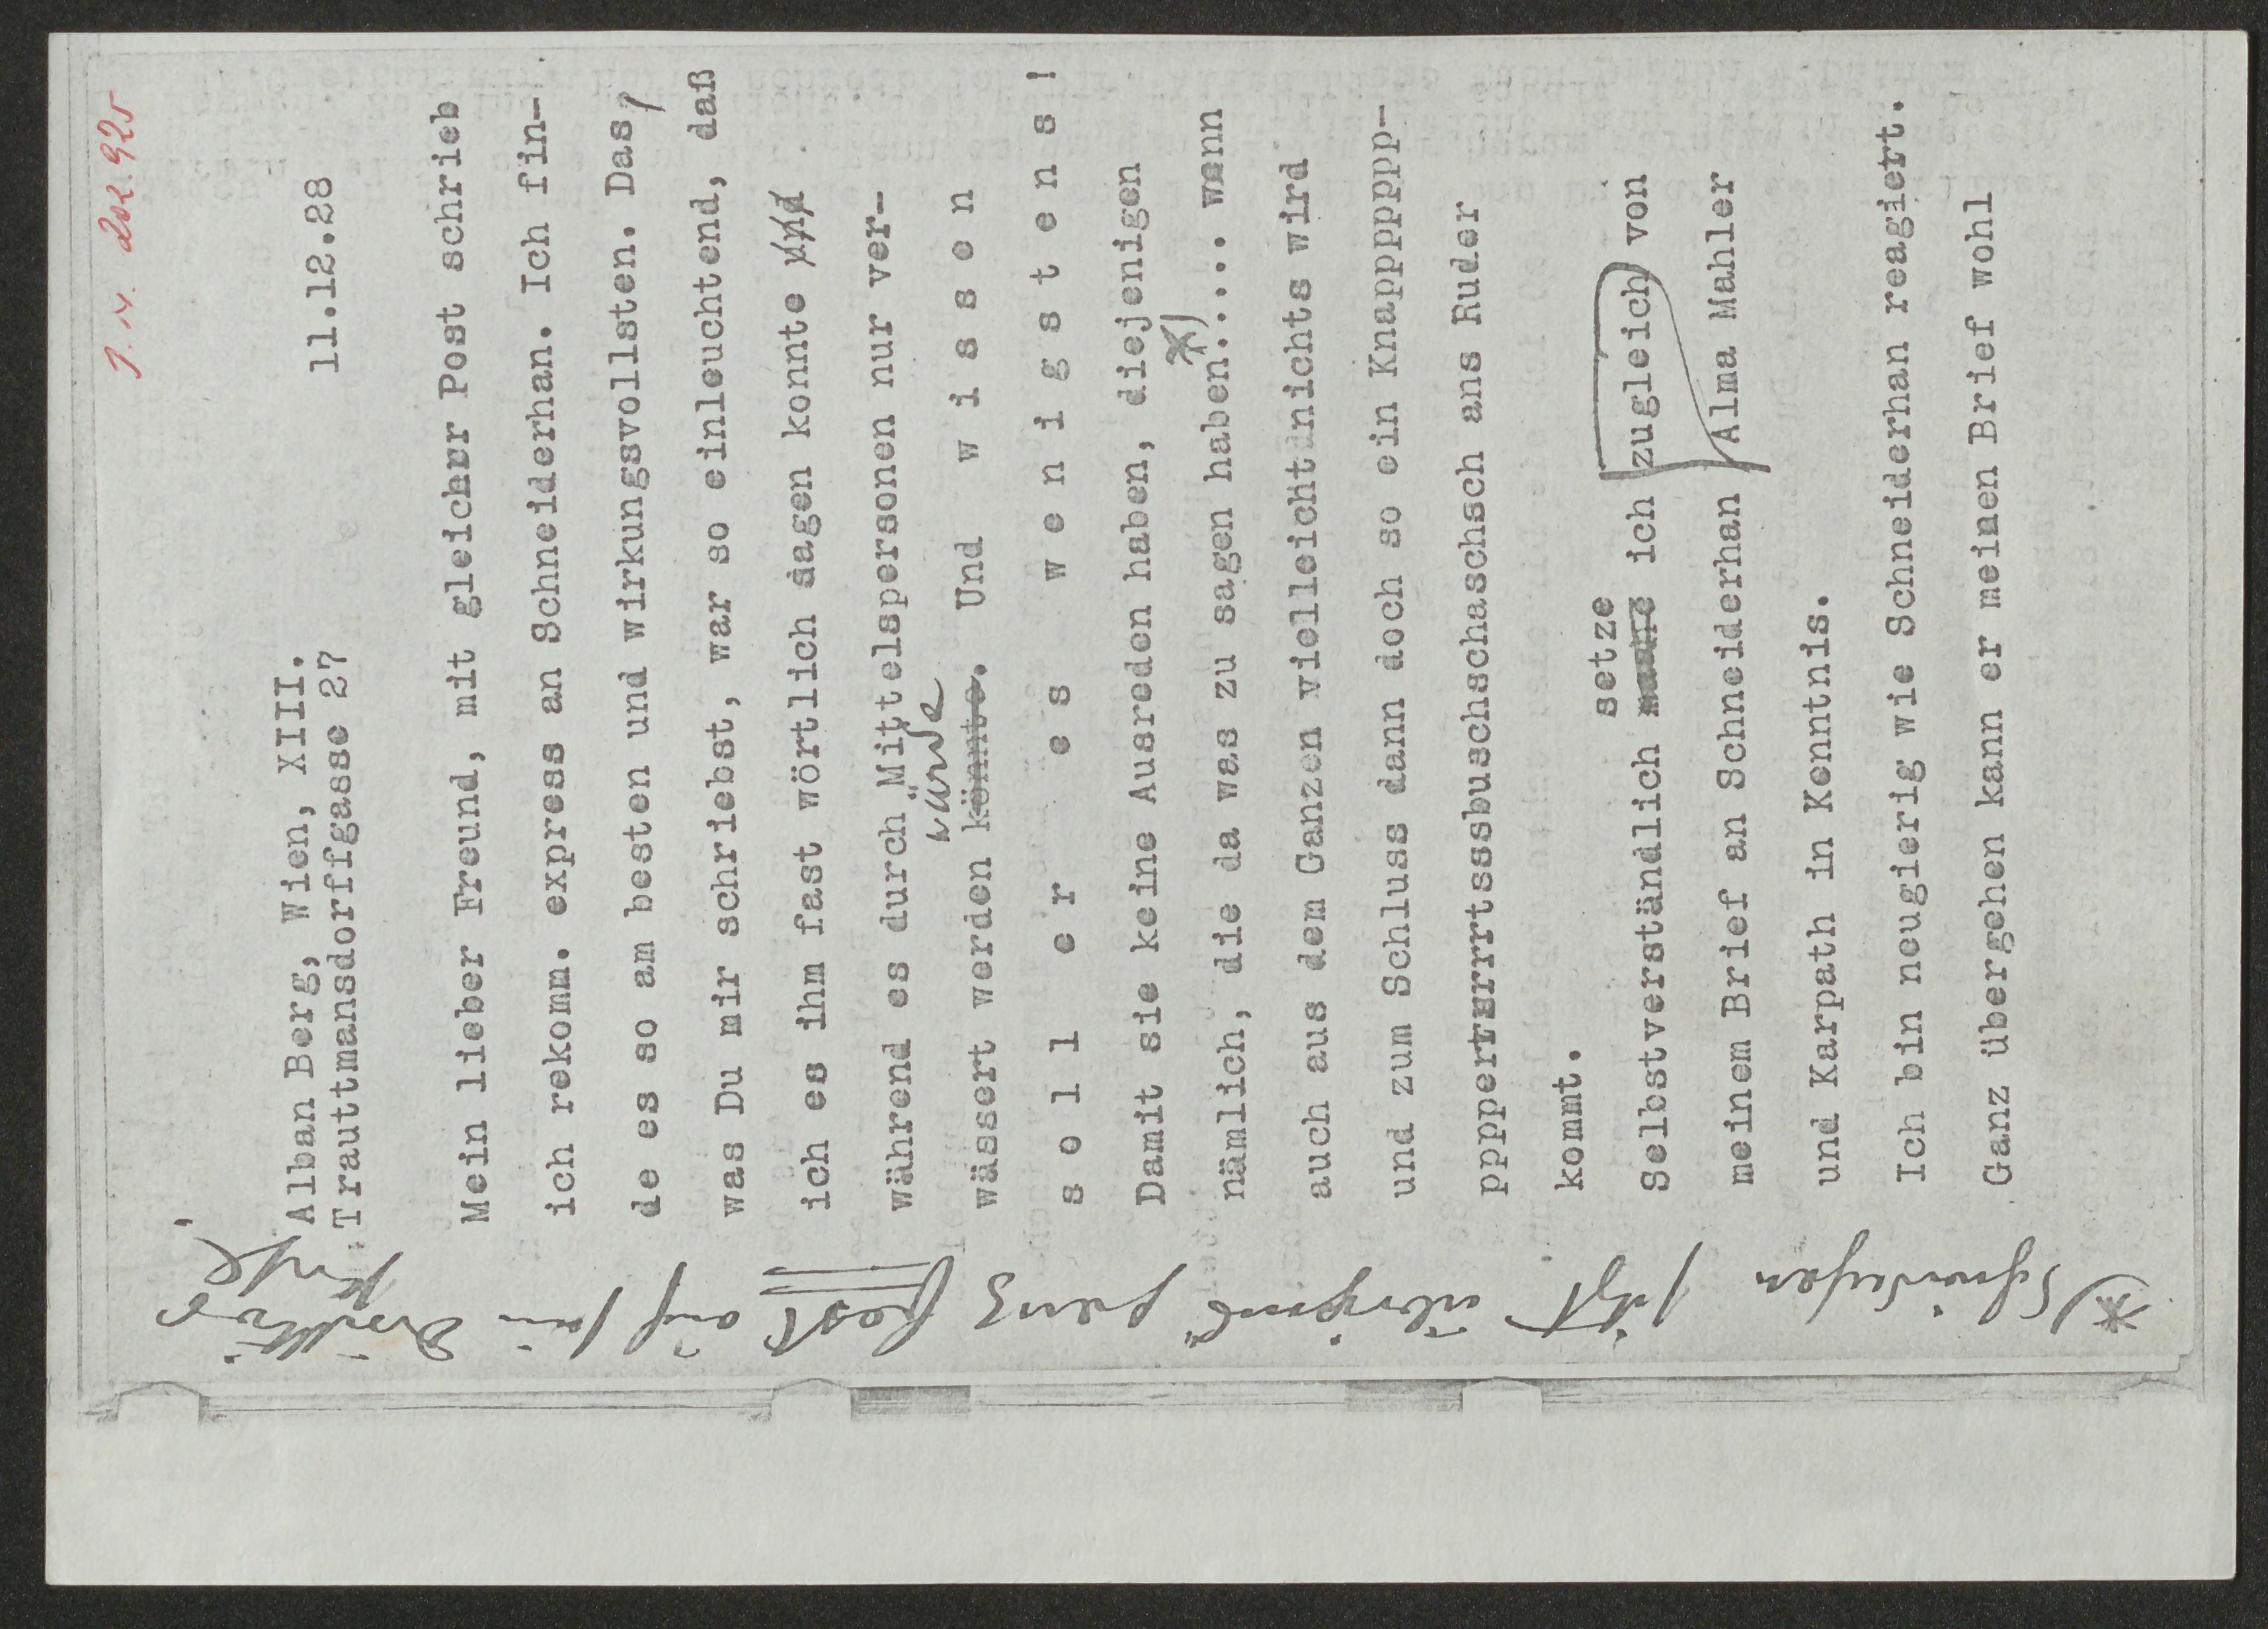 J.N. 202.925
Alban Berg, Wien, XIII.
Trauttmansdorffgasse 27
11.12.28
Mein lieber Freund, mit gleicher Post schrieb
ich rekomm. express an Schneiderhan. Ich fin-
de es so am besten und wirkungsvollsten. Das,
was Du mir schriebst, war so einleuchtend, daß
ich es ihm fast wörtlich sagen konnte und
während es durch Mittelspersonen nur ver-
würde
wässert werden könnte. Und wissen
soll er es wenigstens!
Damit sie keine Ausreden haben, diejenigen
nämlich, die da was zu sagen haben*)..... wenn
auch aus dem Ganzen vielleicht nichts wird
und zum Schluss dann doch so ein Knappppppp-
pppperrrrrtsssbuschschaschsch ans Ruder
kommt.
setze
Selbstverständlich mache ich zugleich von
meinem Brief an Schneiderhan Alma Mahler
und Karpath in Kenntnis.
Ich bin neugierig wie Schneiderhan reagiert.
Ganz übergehen kann er meinen Brief wohl
*) Schneiderhan sitzt übrigens ganz fest auf sein